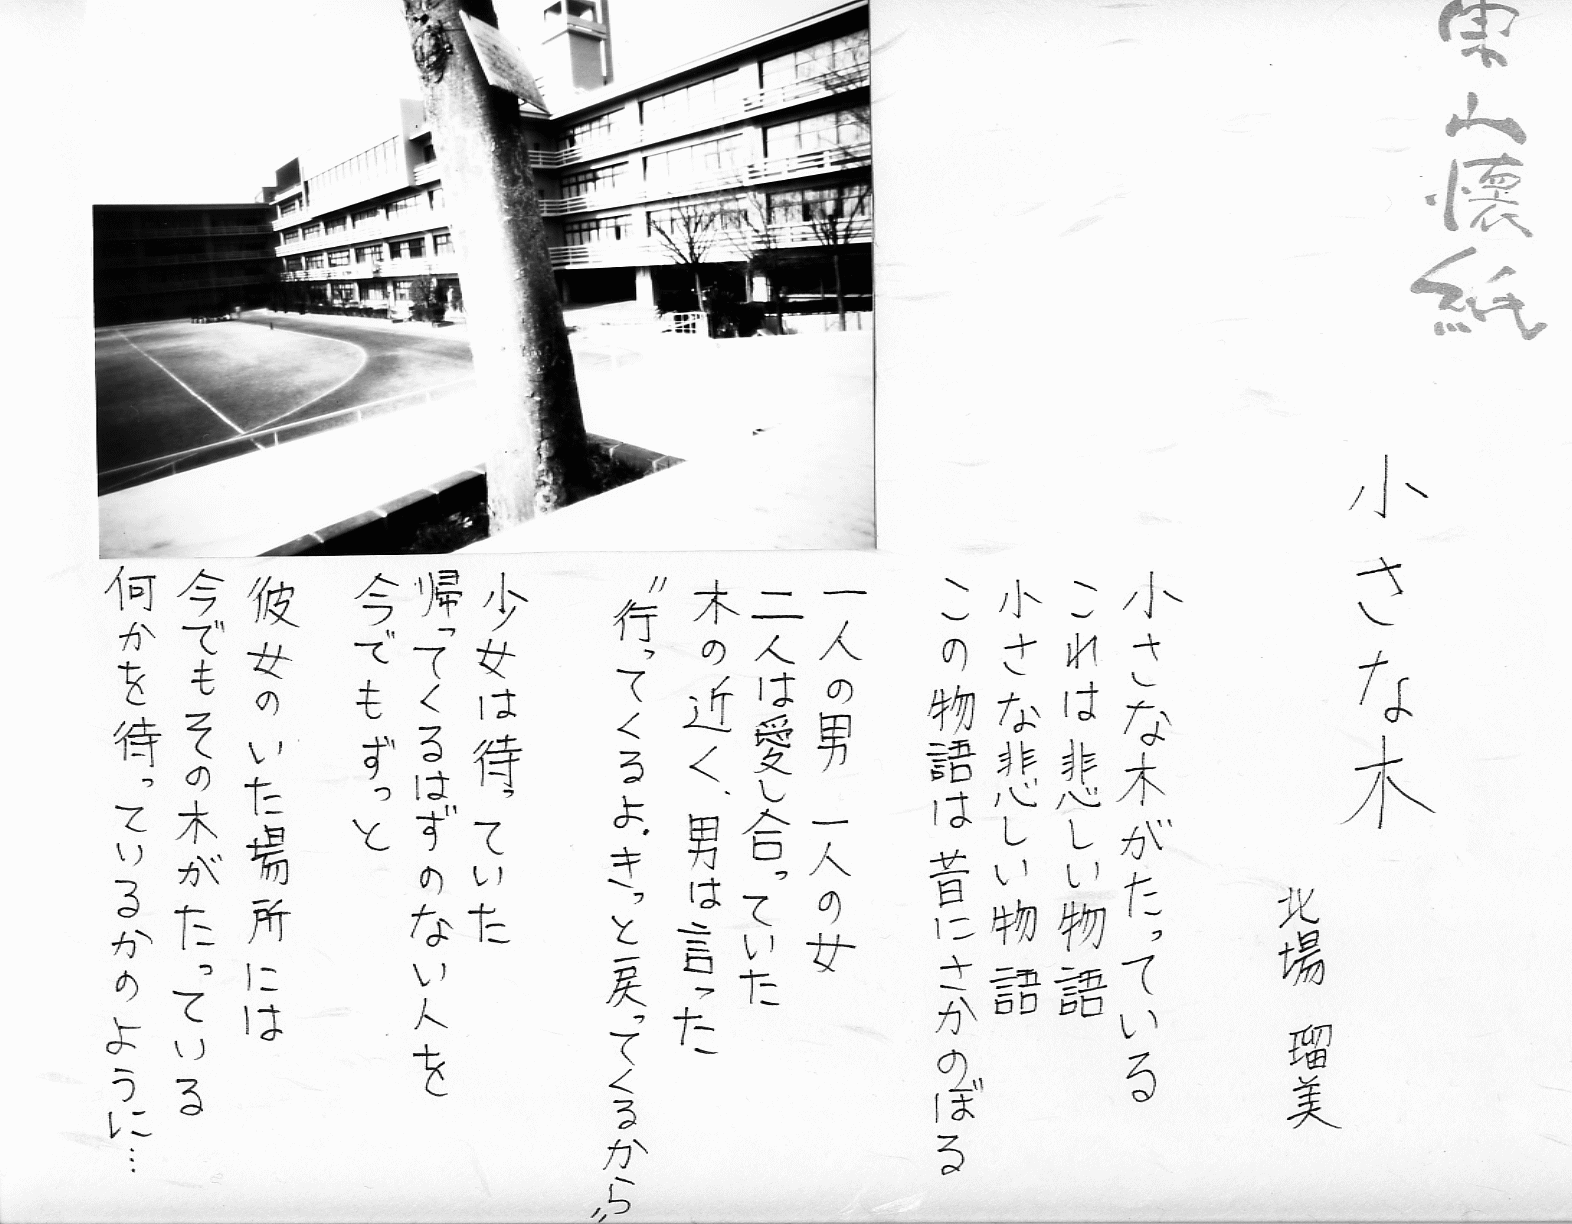 東山懐紙
小さな木
北場 瑠美
小さな木がたっている
これは悲しい物語
小さな悲しい物語
この物語は昔にさかのぼる
一人の男 一人の女
二人は愛し合っていた
木の近く、男は言った
“行ってくるよ.きっと戻ってくるから”
少女は待っていた
帰ってくるはずのない人を
今でもずっと
彼女のいた場所には
今でもその木がたっている
何かを待っているかのように…